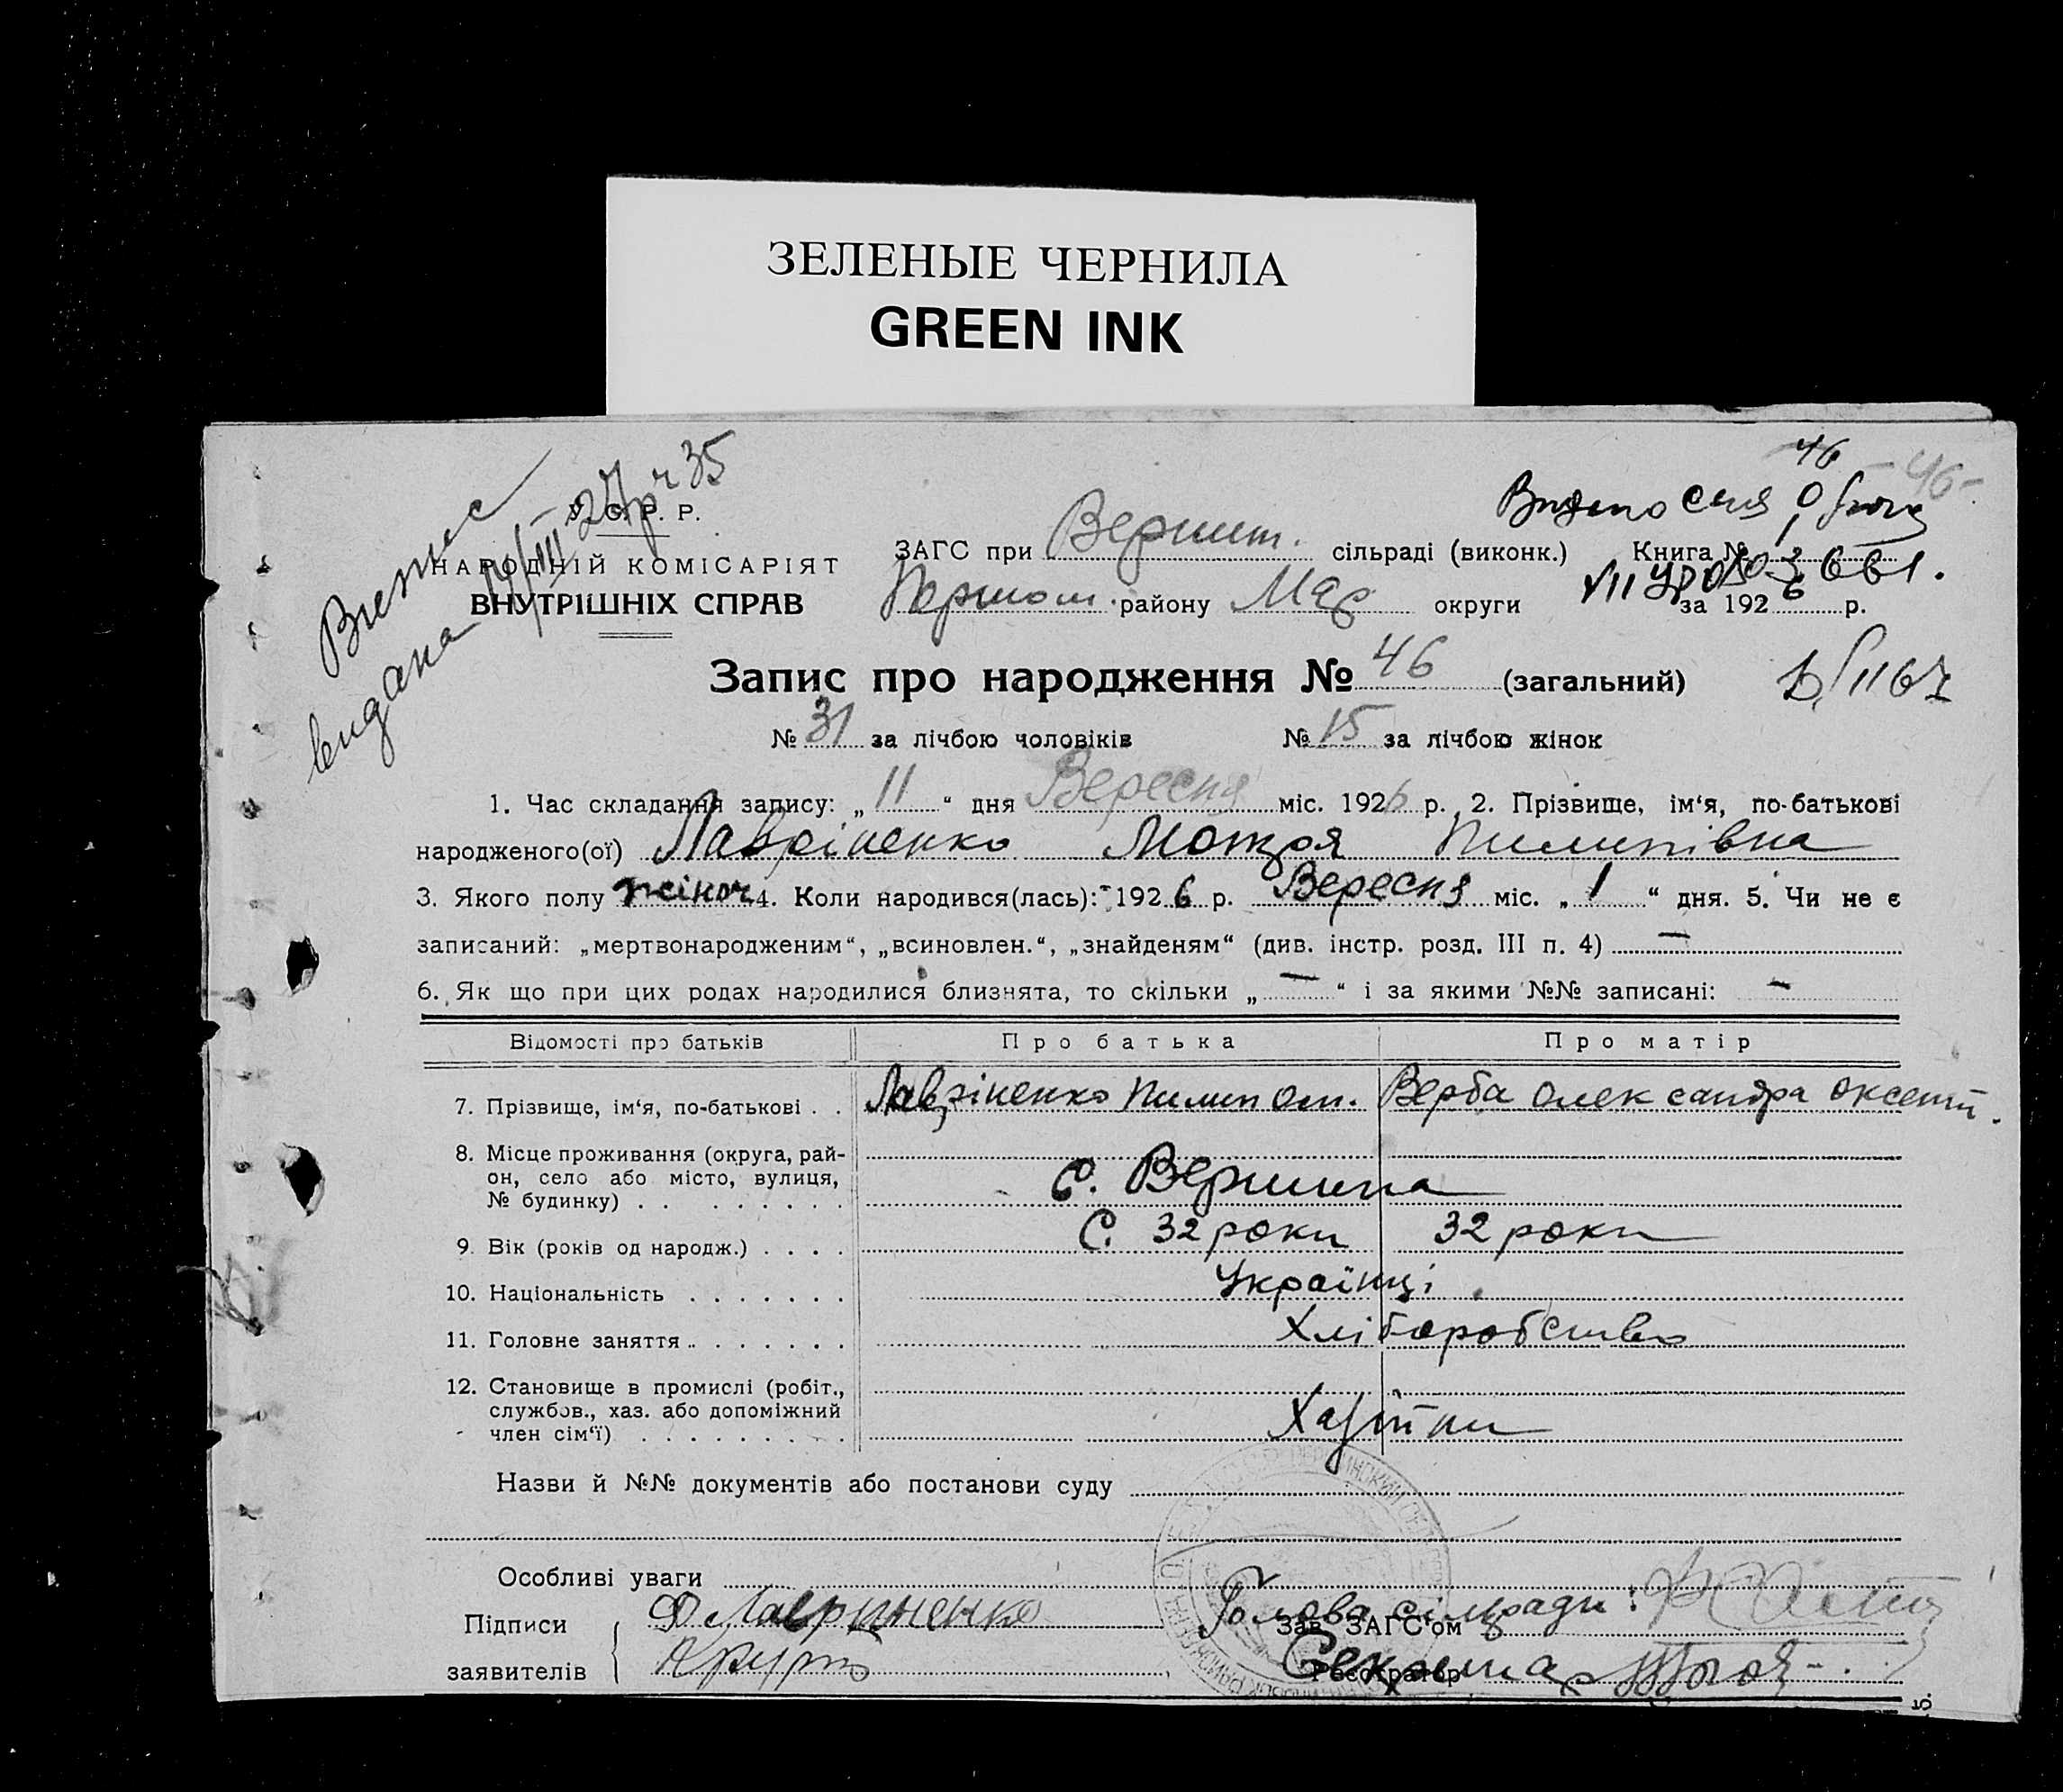 ЗЕЛЕНЫЕ ЧЕРНИЛА
GREEN INK
46
46-
Випис
видана 14/III 27р
ч 35
У. С. Р. Р.
НАРОДНІЙ КОМІСАРІЯТ
ВНУТРІШНІХ СПРАВ
ЗАГС при Вершит. сільраді (виконк.) Книга №
Першот. району Мар округи за 1926 р.
Запис про народження № 46 (загальний)
№ 31 за лічбою чоловіків № 15 за лічбою жінок
1. Час складання запису: „11“ дня Вересня міс. 1926 р. 2. Прізвище, ім‘я, по-батькові
народженого(ої) Лавріненко Мотря Пилипівна
3. Якого полу жіноч 4. Коли народився(лась): 1926 р. Вересня міс. „1“ дня. 5. Чи не є
записаний: „мертвонародженим“, „всиновлен.“, „знайденям“ (див. інстр. розд. III п. 4) —
6. Як що при цих родах народилися близнята, то скільки „—“ і за якими №№ записані: -
Відомості про батьків Про батька Про матір
7. Прізвище, ім‘я, по-батькові . . Лавріненко Пилип От. Верба Олександра Оксент.
8. Місце проживання (округа, рай-
он, село або місто, вулиця,
№ будинку) . . . . . . . . С. Вершина
9. Вік (років од народж.) . . . . С. 32 роки 32 роки
10. Національність . . . . . . . Українці.
11. Головне заняття . . . . . . . Хліборобство
12. Становище в промислі (робіт.,
службов., хаз. або допоміжний
член сім‘ї) . . . . . . . . . Хазяїни
Назви й №№ документів або постанови суду
Особливі уваги
Підписи Ф Лавриненко Голова сільради:
Зав. ЗАГС‘ом
заявителів Секретар
Реєстратор